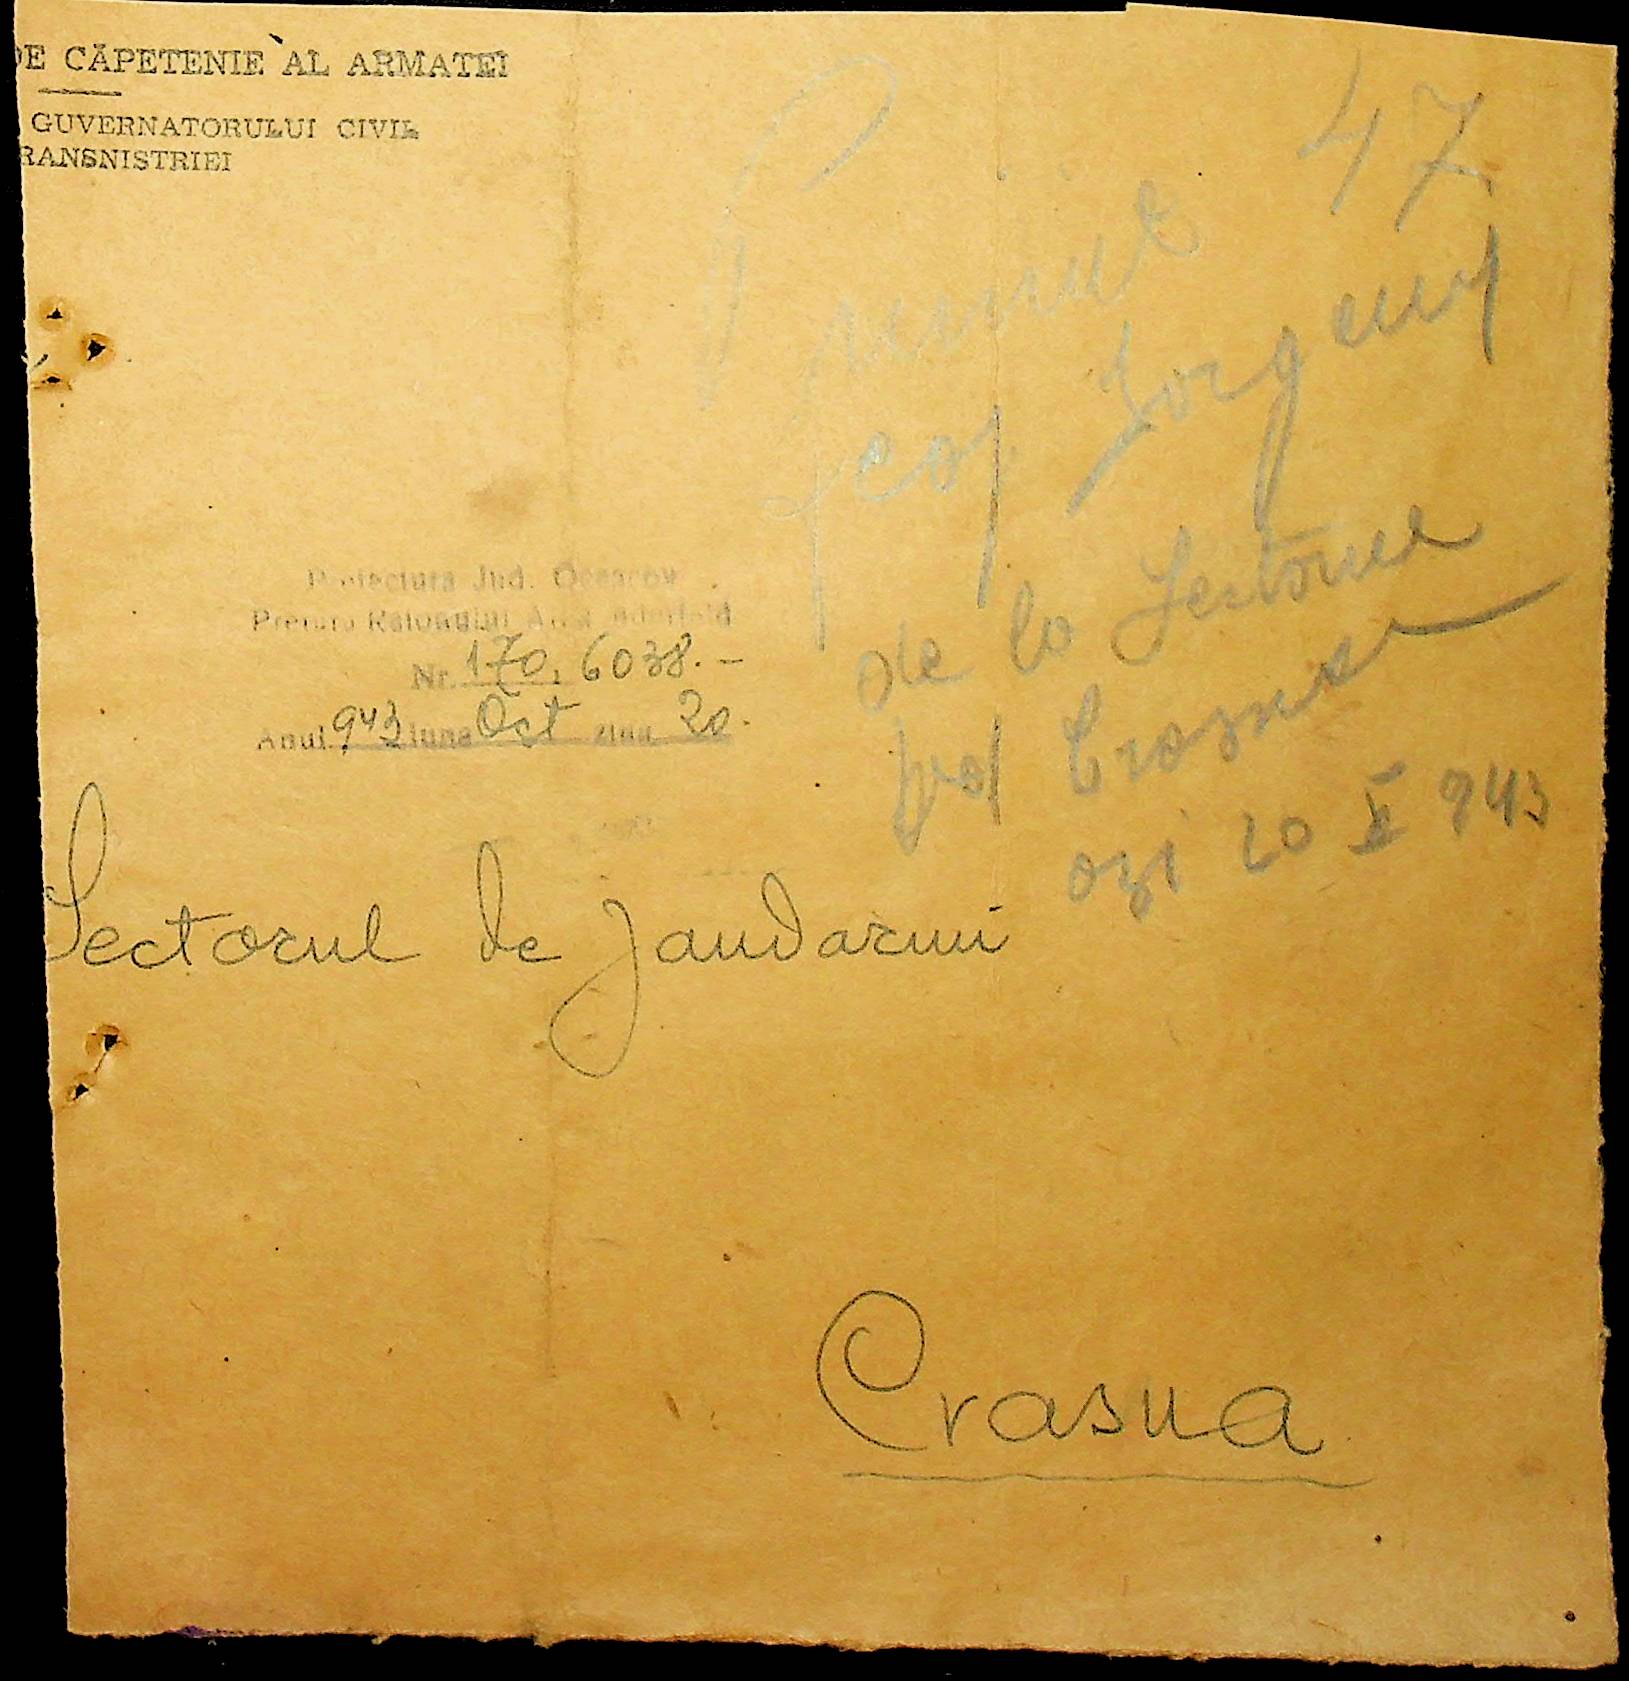 DE CĂPETENIE AL ARMATEI
GUVERNATORULUI CIVIL
RANSNISTRIEI
47
Primit
de la Sectorul
Crasna
azi 20 X 943
Prefectura Jud. Oceacov
Pretura Raionului
Nr. 170, 6038.-
Anul 943 luna Oct ziua 20.
Sectorul de Jandarmi
Crasna